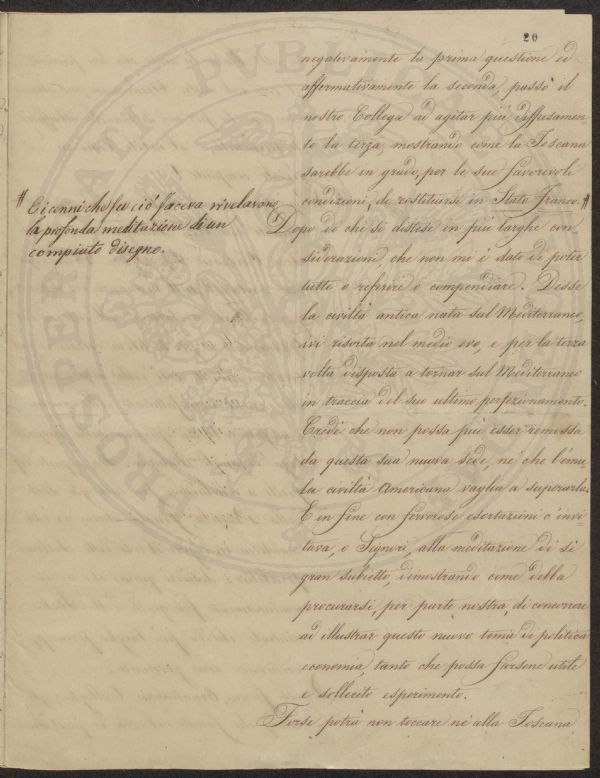 20
negativamente la prima questione ed
affermativamente la seconda, passò il
nostro Collega ad agitar più diffusamen-
te la terza, mostrando come la Toscana
sarebbe in grado, per le sue favorevoli
condizioni, di costituirsi in Stato Franco. #
# E i cenni che su ciò faceva rivelavano
la profonda meditazione di un
compiuto disegno.
Dopo di che si distese in più larghe con-
siderazioni, che non mi è dato di poter
tutte o referire o compendiare. Disse
la civiltà antica nata sul Mediterraneo,
ivi risorta nel medio evo, e per la terza
volta disposta a tornar sul Mediterraneo
in traccia del suo ultimo perfezionamento.
Crede che non possa più esser remossa
da questa sua nuova sede, nè che l'emu-
la civiltà Americana vaglia a superarla.
E in fine con fervorose esortazioni c'invi-
tava, o Signori, alla meditazione di sì
gran subietto, dimostrando come debba
procurarsi, per parte nostra, di concorrere
ad illustrar questo nuovo tema di politica
economia, tanto che possa farsene utile
e sollecito esperimento.
Forse potrà non toccare nè alla Toscana
PROSPERITÀ PUBBLICHE